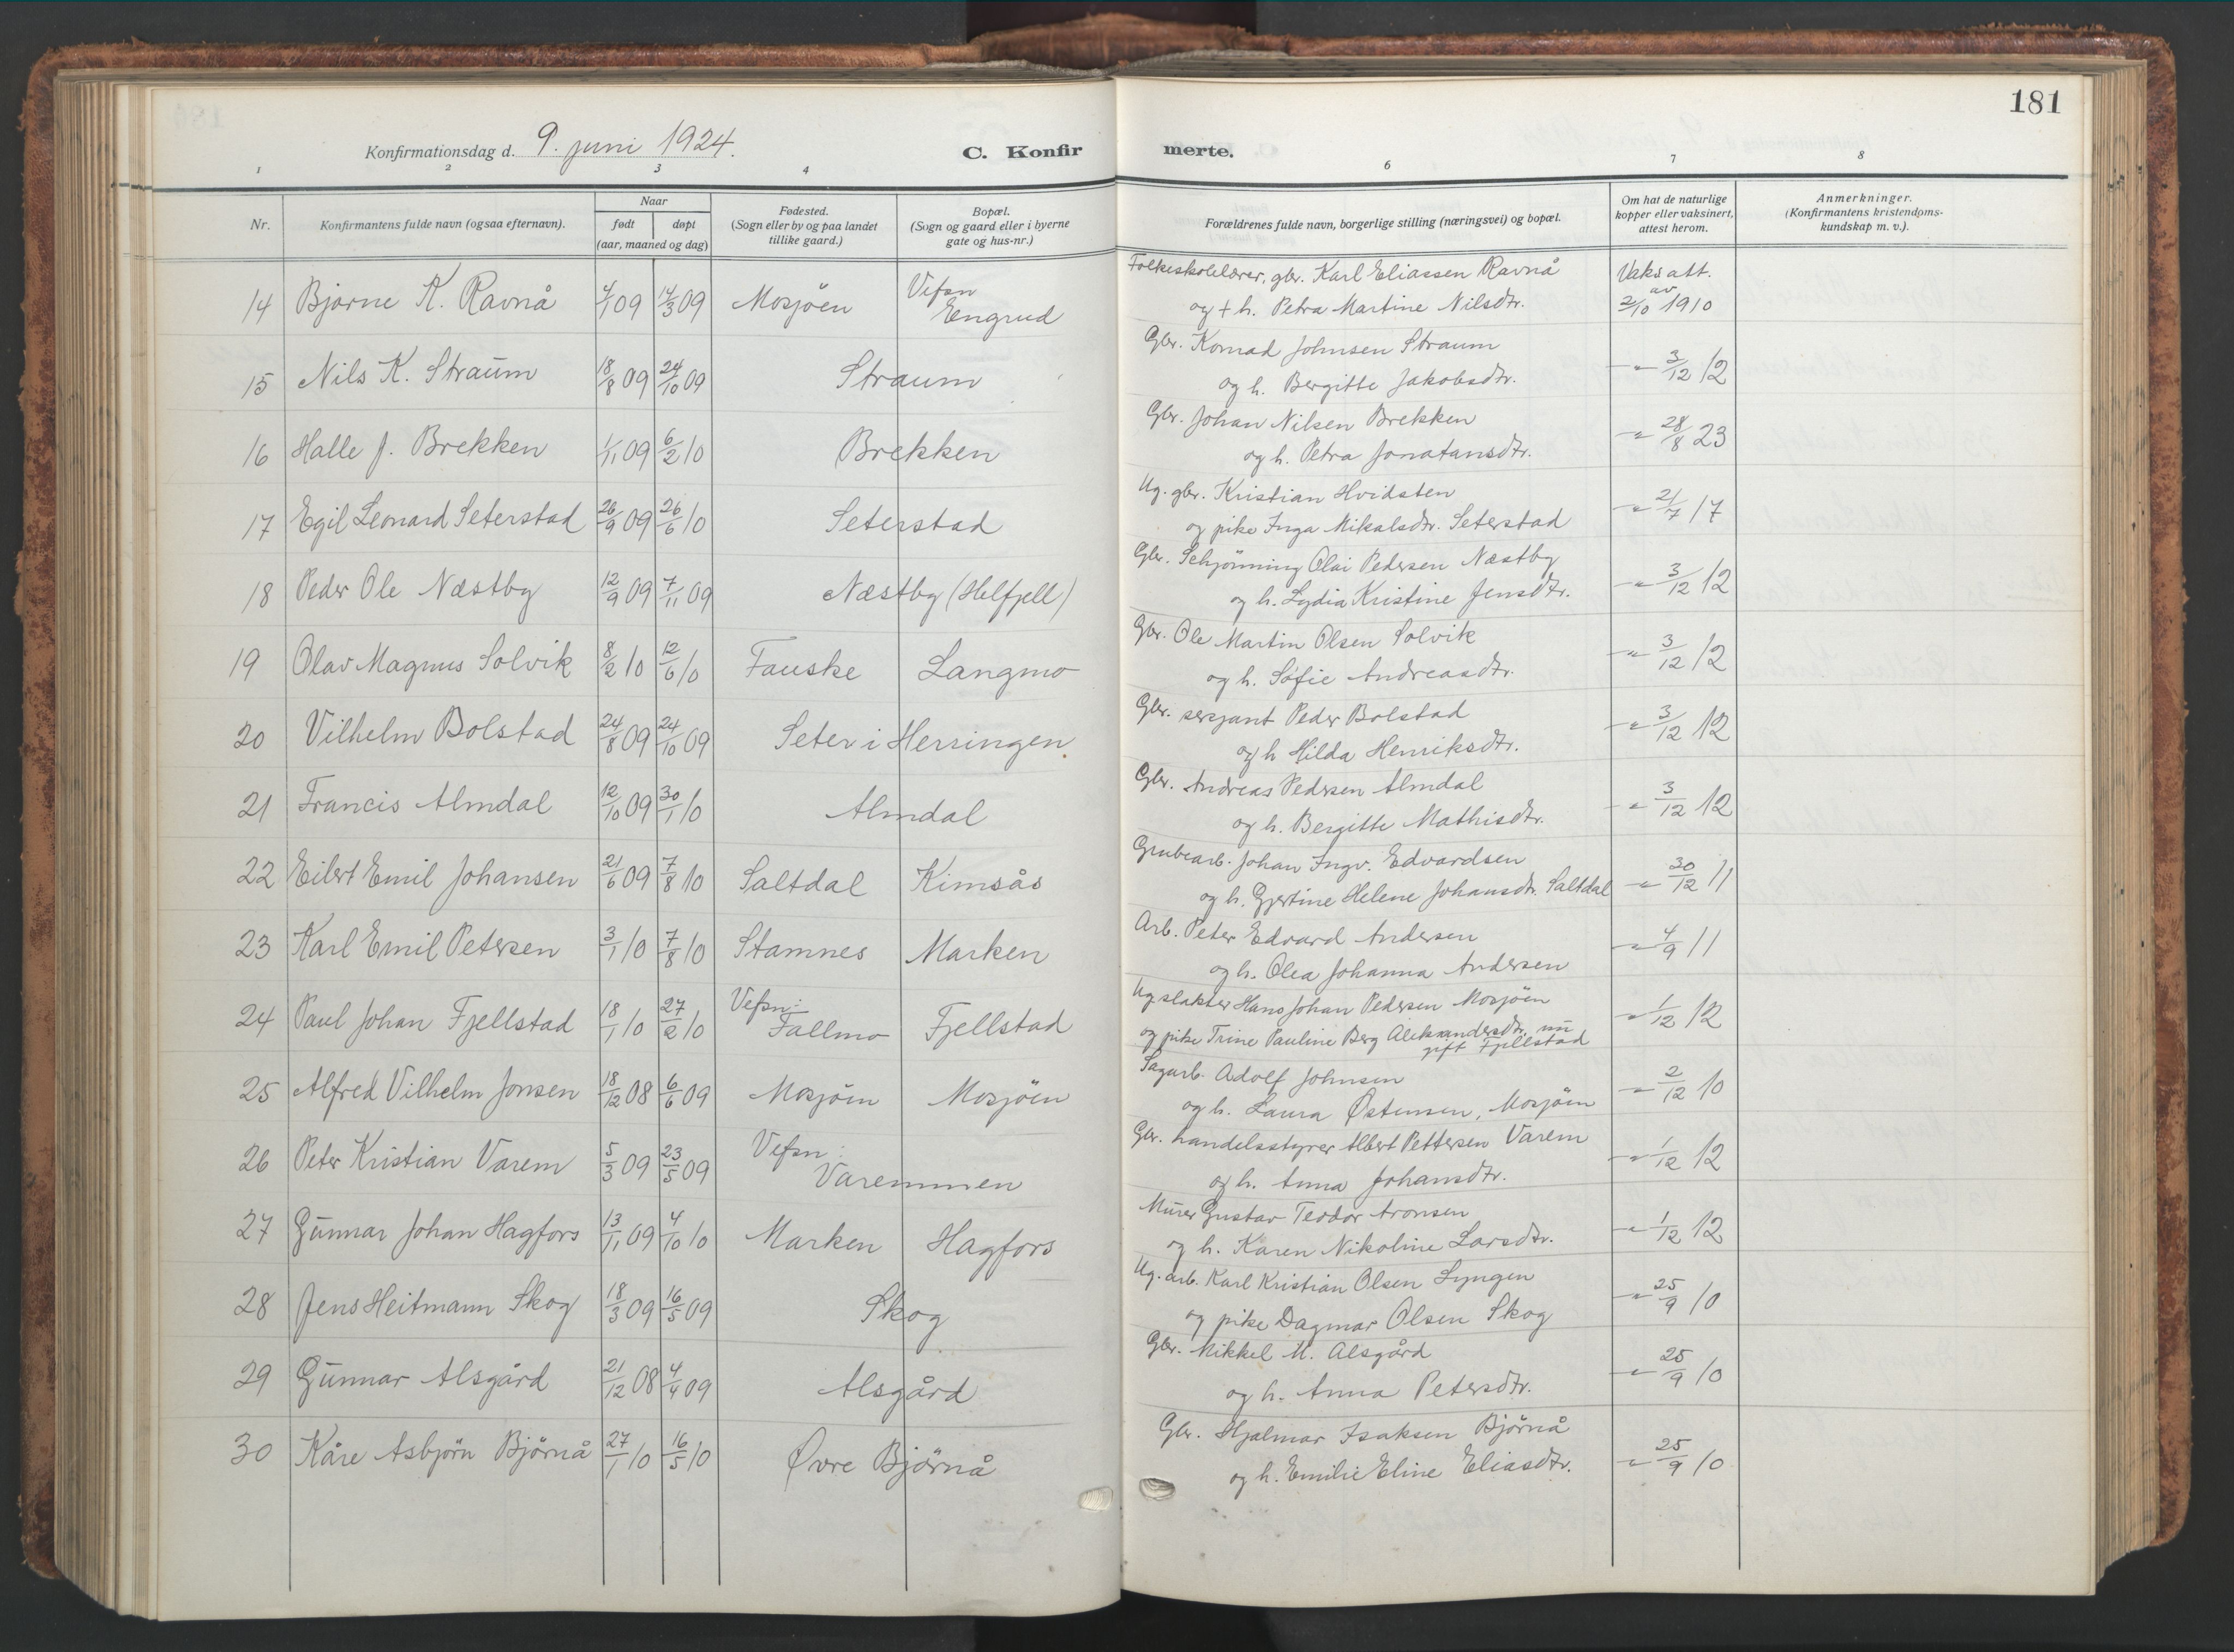 181
Konfirmationsdag d. 9. juni 1924.
C. Konfirmerte.
1 2 3 4 6 7 8
Nr.
Konfirmantens fulde navn (ogsaa efternavn).
Naar
født døpt
(aar, maaned og dag)
Fødested.
(Sogn eller by og paa landet
tillike gaard.)
Bopæl.
(Sogn og gaard eller i byerne
gate og hus-nr.)
Forældrenes fulde navn, borgerlige stilling (næringsvei) og bopæl.
Om hat de naturlige
kopper eller vaksinert,
attest herom.
Anmerkninger.
(Konfirmantens kristendoms-
kundskap m. v.).
14 Bjarne K. Ravnå 4/1 09 14/3 09 Mosjöen Vefsn Engrud Folkeskolelærer, gbr. Karl Eliassen Ravnå Vaks att.
og + h. Petra Martine Nilsdtr. av 2/10 1910
15 Nils K. Straum 18/8 09 24/10 09 Straum Gbr. Konrad Johnsen Straum
og h. Bergitte Jakobsdtr. -"- 3/12 12
16 Halle J. Brekken 1/11 09 6/2 10 Brekken Gbr. Johan Nilsen Brekken
og h. Petra Jonatansdtr. -"- 28/8 23
17 Egil Leonard Seterstad 26/9 09 26/6 10 Seterstad Ug. gbr. Kristian Hvidsten
og pike Inga Mikalsdtr. Seterstad -"- 21/7 17
18 Peder Ole Næstby 12/9 09 7/11 09 Næstby (Helfjell) Gbr. Schjönning Olai Pedersen Næstby
og h. Lydia Kristine Jensdtr. -"- 3/12 12
19 Olav Magnus Solvik 8/2 10 12/6 10 Fauske Langmo Gbr. Ole Martin Olsen Solvik
og h. Sofie Andreasdtr. -"- 3/12 12
20 Vilhelm Bolstad 24/8 09 24/10 09 Seter i Herringen Gbr. sersjant Peder Bolstad
og h Hilda Henriksdtr. -"- 3/12 12
21 Francis Almdal 12/10 09 30/1 10 Almdal Gbr. Andreas Pedersen Almdal
og h. Bergitte Mathisdtr. -"- 3/12 12
22 Eilert Emil Johansen 21/6 09 7/8 10 Saltdal Kimsås Grubearb. Johan Ingv. Edvardsen
og h. Gjertine Helene Johansdtr. Saltdal -"- 30/12 11
23 Karl Emil Petersen 3/1 10 7/8 10 Stamnes Marken Arb. Peter Edvard Andersen
og h. Olea Johanna Andersen -"- 4/9 11
24 Paul Johan Fjellstad 18/1 10 27/2 10 Vefsn: Fallmo Fjellstad Ug. slakter Hans Johan Pedersen Mosjöen
og pike Trine Pauline Berg Aleksandersdtr. nu
gift Fjellstad -"- 1/12 12
25 Alfred Vilhelm Jonsen 18/12 08 6/6 09 Mosjöen Mosjöen Sagarb. Adolf Johnsen
og h. Laura Østensen, Mosjöen -"- 2/12 10
26 Peter Kristian Varem 5/3 09 23/5 09 Vefsn: Varemmen Gbr. handelsstyrer Albert Pettersen Varem
og h. Anna Johansdtr. -"- 1/12 12
27 Gunnar Johan Hagfors 13/11 09 4/10 10 Marken Hagfors Murer Gustav Teodor Aronsen
og h. Karen Nikoline Larsdtr. -"- 1/12 12
28 Jens Heitmann Skog 18/3 09 16/5 09 Skog Ug. arb. Karl Kristian Olsen Lyngen
og pike Dagmar Olsen Skog -"- 25/9 10
29 Gunnar Alsgård 21/12 08 4/4 09 Alsgård Gbr. Mikkel M. Alsgård
og h. Anna Petersdtr. -"- 25/9 10
30 Kåre Asbjörn Björnå 27/1 10 16/5 10 Øvre Björnå Gbr. Hjalmar Isaksen Björnå
og h. Emilie Eline Eliasdtr. -"- 25/9 10